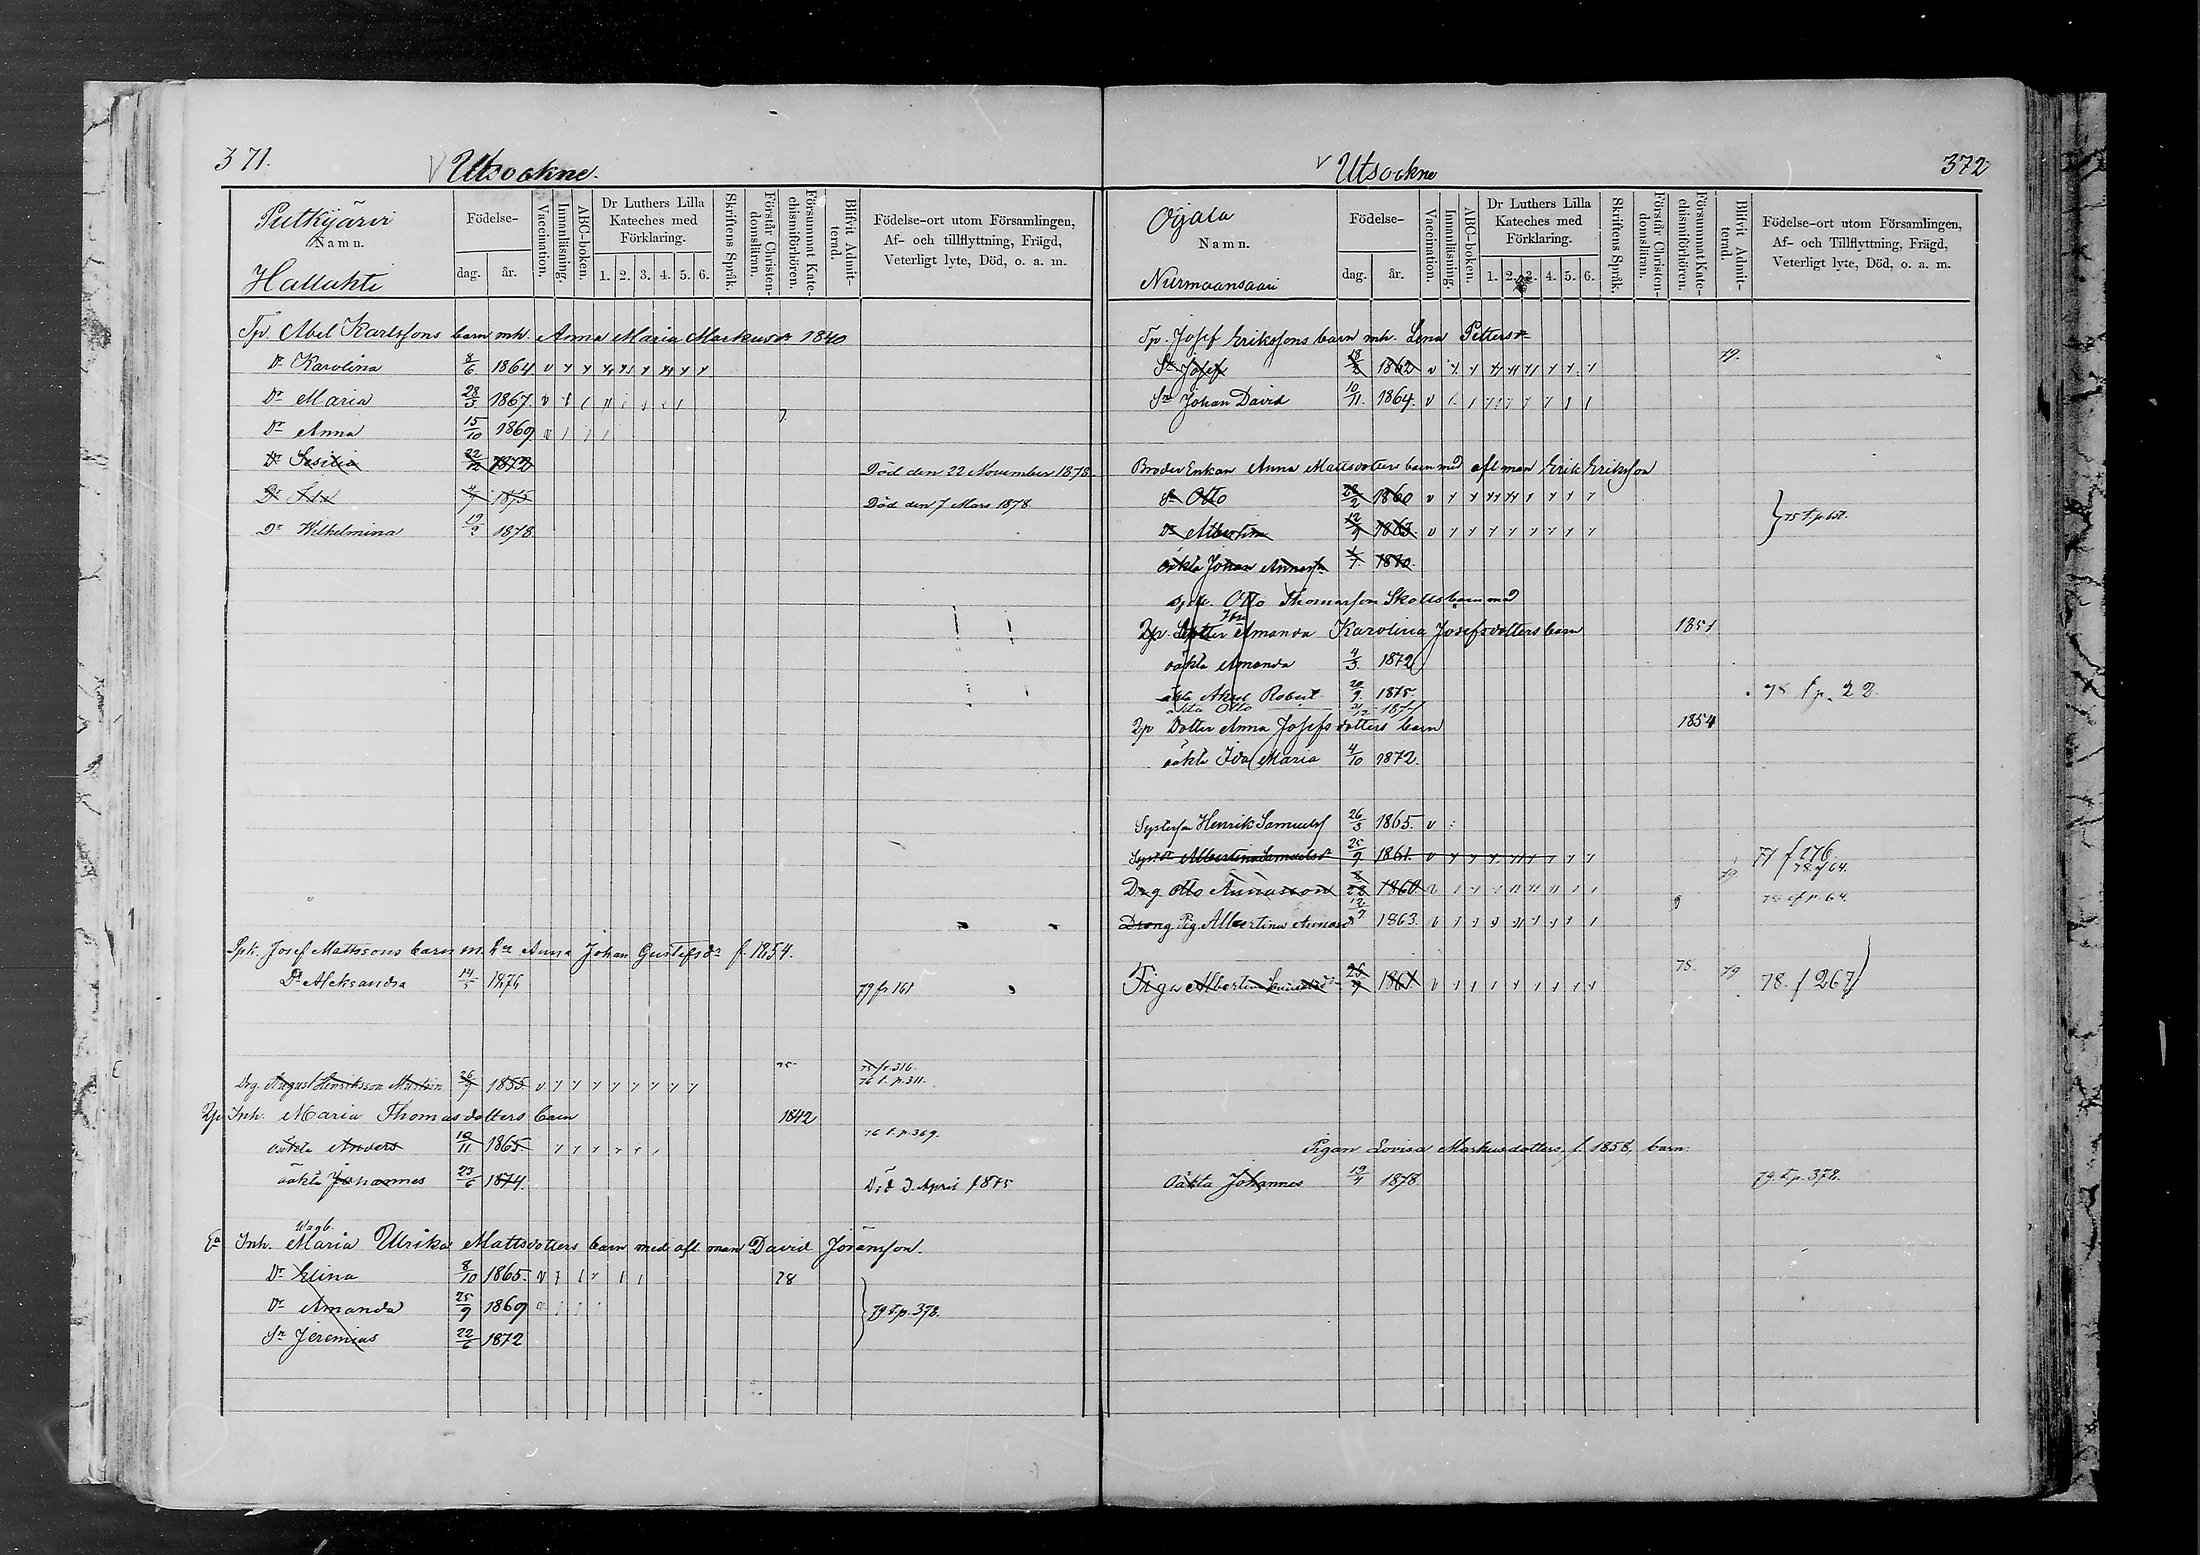 371.
Utsockne.
Putkijärvi
Namn.
Hallahti
Födelse-
dag.
år.
Vaccination.
Innanläsning.
ABC-boken.
Dr Luthers Lilla
Kateches med
Förklaring.
1. 2. 3. 4. 5. 6.
Skriftens Språk.
Förstår Christen-
domsläran.
Försummat Kate-
chismiförhören.
Blifvit Admit-
terad.
Födelse-ort utom Församlingen,
Af- och tillflyttning, Frägd,
Veterligt lyte, Död, o. a. m.
Tp. Abel Karlssons barn mh. Anna Maria Markusdr 1840
Dr Karolina 8/6 1864
Dr Maria 28/3 1867.
Dr Anna 15/10 1869
Dr Sesilia 22/12 1872 Död den 22 November 1878.
Dr Ida 4/7 1875 Död den 7 Mars 1878
Dr Wilhelmina 19/2 1878
Spk. Josef Mattssons barn m. hu Anna Johan Gustafsdr f. 1854.
Dr Aleksandra 14/5 1876 79 fr 161
75 fr. 316.
Drg. August Henriksson 26/7 1855 76 t. p. 311.
Inh. Maria Thomasdotters barn 1842
oäkta Anders 10/11 1865. 76 t. p. 369.
oäkta Johannes 23/6 1874. Död 3. April 1875
Inh. Maria Ulrika Mattsdotters barn med afl. man David Göransson.
Dr Elina 8/10 1865. 78
Dr Amanda 25/9 1869 79 t. p. 378.
Sn Jeremias 22/6 1872
372
Utsockne
Oijala
Namn.
Nurmaansaari
Födelse-
dag.
år.
Vaccination.
Innanläsning.
ABC-boken.
Dr Luthers Lilla
Kateches med
Förklaring.
1. 2. 3. 4. 5. 6.
Skriftens Språk.
Förstår Christen-
domsläran.
Försummat Kate-
chismiförhören.
Blifvit Admit-
terad.
Födelse-ort utom Församlingen,
Af- och Tillflyttning, Frägd,
Veterligt lyte, Död, o. a. m.
Tp. Josef Erikssons barn mh. Lena Pettersdr
Sn Josef 1862 79.
Sn Johan David 10/11. 1864.
Broder Enkan Anna Mattsdotters barn med afl man Erik Eriksson
Sn Otto 1860
Dr Albertina 12/9 1863. 75 t. p. 651.
oäkta Johan 1870.
Otto Thomasson Skotts barn med
Amanda Karolina Josefsdotters barn 1851
oäkta Amanda 4/3. 1872
äkta Robert 20/9. 1875. 78 f p. 22.
äkta Otto 1877
Dotter Anna Josefsdotters barn 1854
oäkta Ida Maria 4/10 1872.
Systerson Henrik Samuelsson 26/3 1865.
Systdr Albertina Samuelsdr 25/9 1861. 77 f 176
78 f 64.
Drg Otto Annasson 1860. 79 78 f p. 64.
Dräng Pig Albertina 12/9 1863.
Piga Albertina 25/9 1861 78. 79 78. f 267
Pigan Lovisa Markusdotters, f. 1858, barn
Oäkta Johannes 1878 79. t. p. 378.